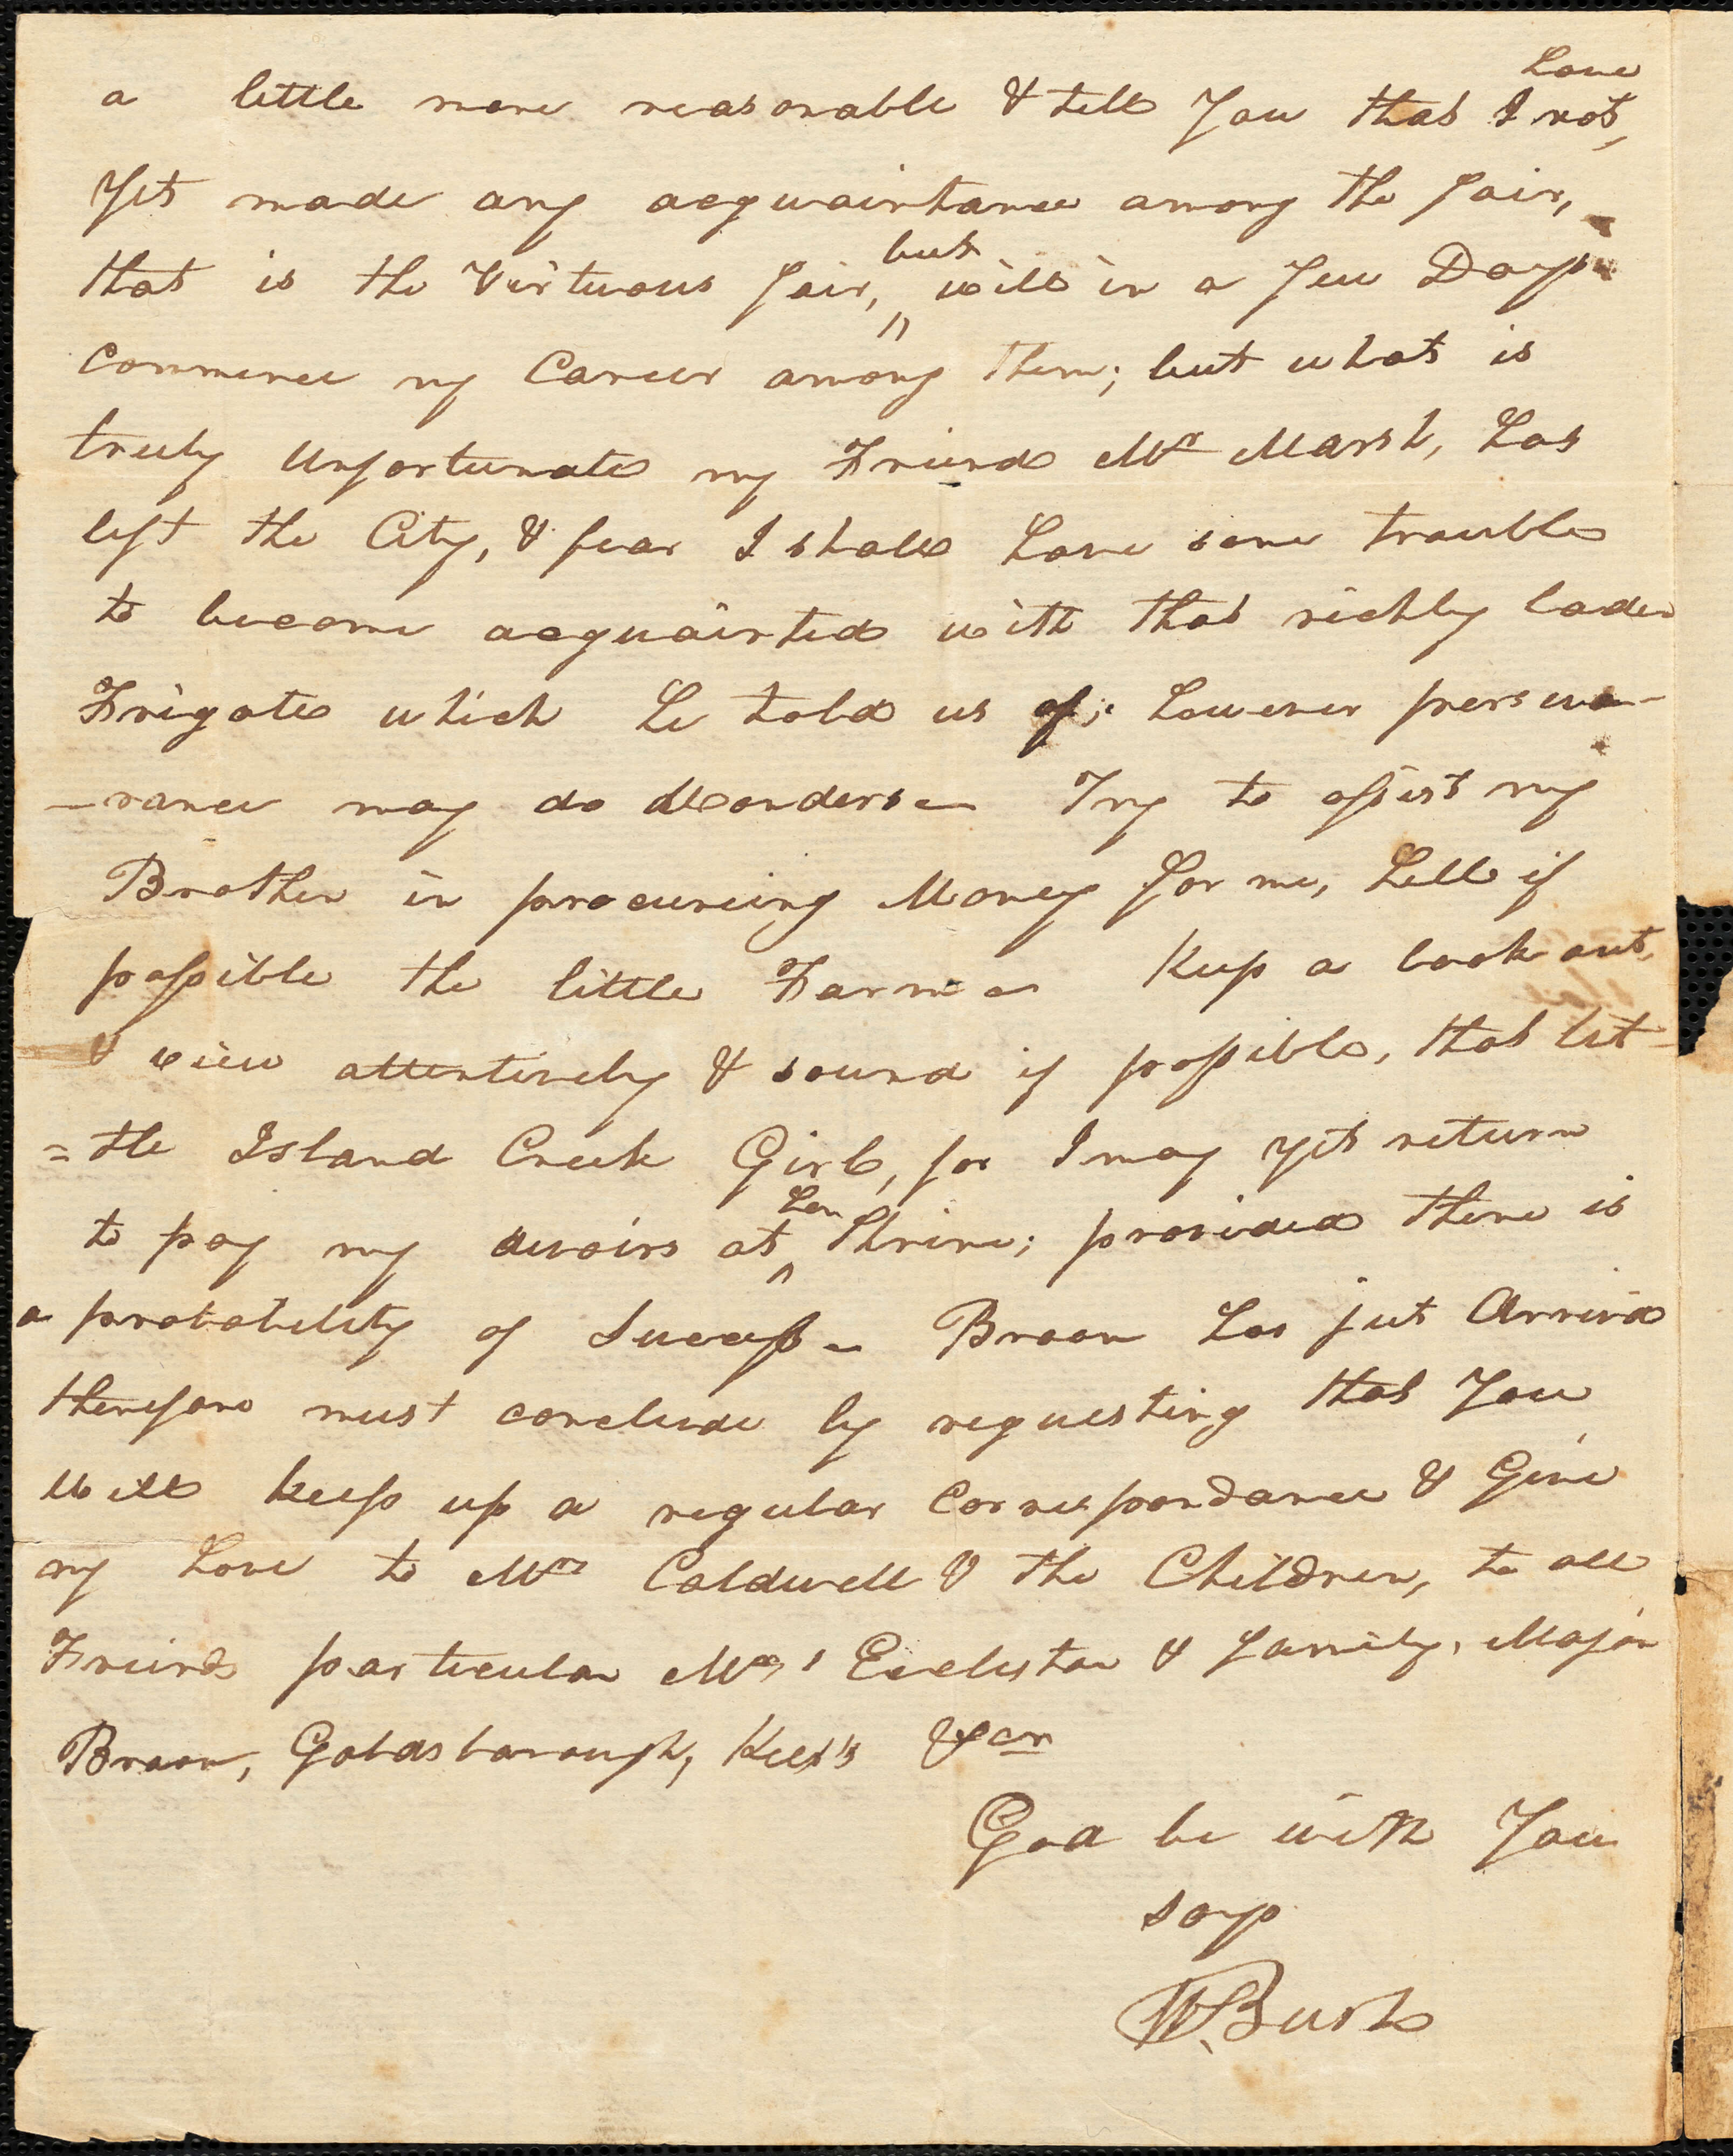 a little more reasonable & tell You that I have not,
Yet made any acquaintance among the fair,
that is the Virtuous fair, but will in a few Days
Commence my Career among them; but what is
truly Unfortunate my Friend Mr Marsh, has
left the City, & fear I shall have some trouble
to become acquainted with that richly laden
Frigate which he told us of; however perseve-
-rance may do Wonders - Try to assist my
Brother in procuring Money for me, Sell if
possible the little Farm - Keep a look out,
& view attentively & sound if possible, that lit-
=tle Island Creek Girl, for I may yet return
to pay my devoirs at her Shrine; provided there is
a probability of Success - Braon has just Arrivd
therefore must conclude by requesting that You
Will keep up a regular Correspondance & Give
my Love to Mrs Caldwell & the Children, to all
Friends particular Mrs Eccleston & family, Major
Braon, Goldsborough, Kees &c
God be with You
says
W. Bush